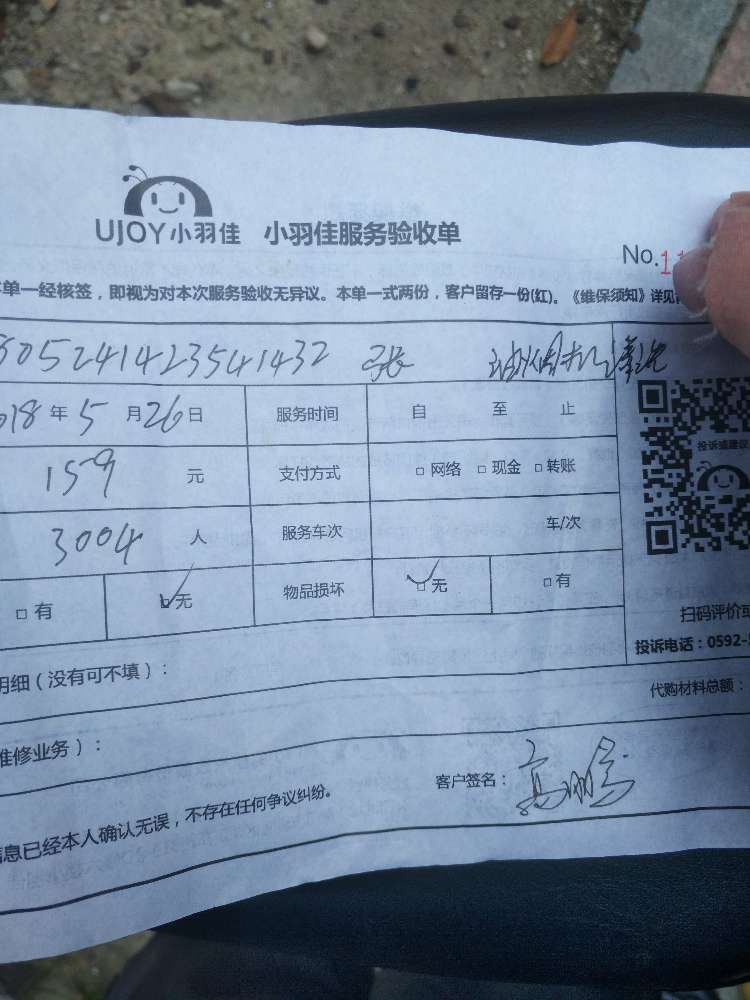 UJOY小羽佳 小羽佳服务验收单
No.11
单一经核签，即视为对本次服务验收无异议。本单一式两份，客户留存一份(红)。《维保须知》详见
805241423541432 张 油烟机清洗
018年5月26日 服务时间 自 至 止
投诉或建议
159 元 支付方式 □网络 □现金 □转账
3004 人 服务车次 车/次
□有 ☑无 物品损坏 ☑无 □有
扫码评价或
投诉电话：0592-
明细（没有可不填）：
代购材料总额：
维修业务）：
客户签名：
信息已经本人确认无误，不存在任何争议纠纷。